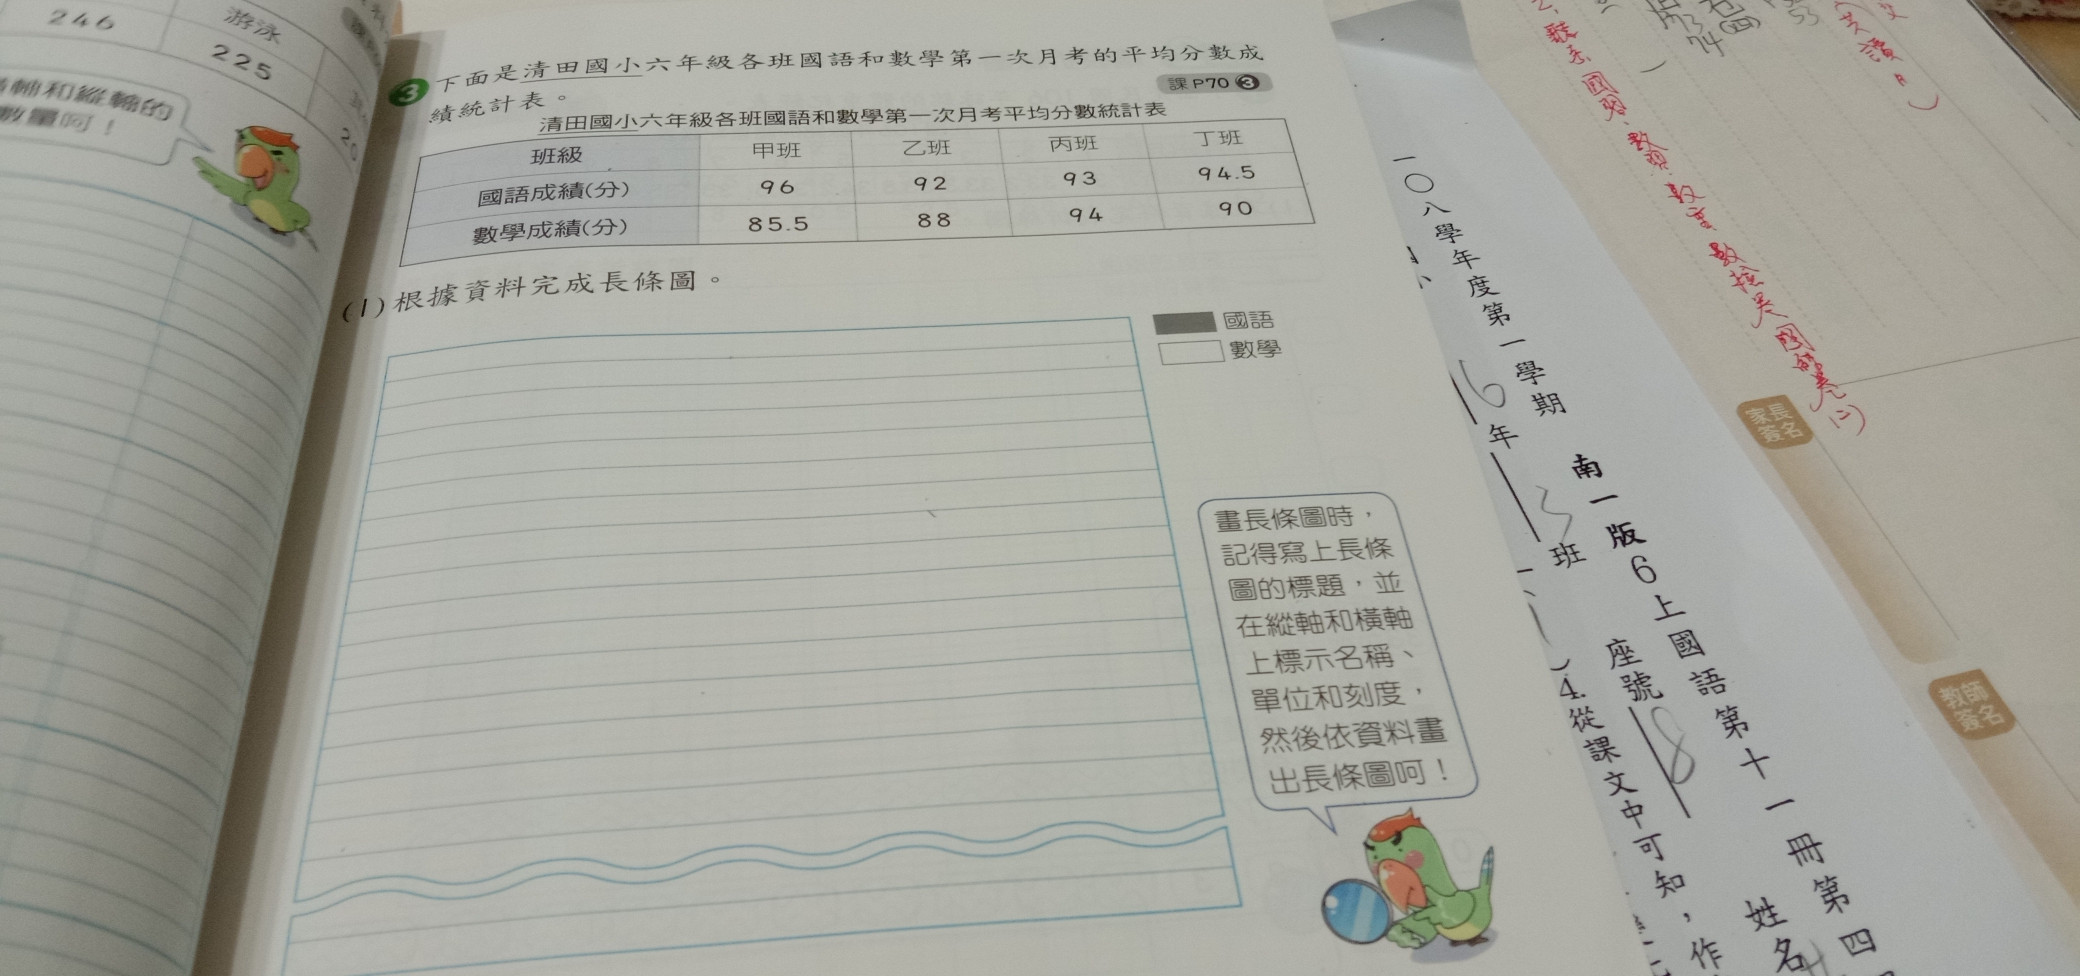 246
游泳
225
20
軸和縱軸的
數量呵！
3 下面是清田國小六年級各班國語和數學第一次月考的平均分數成
績統計表。
課P70 3
清田國小六年級各班國語和數學第一次月考平均分數統計表
班級 甲班 乙班 丙班 丁班
國語成績(分) 96 92 93 94.5
數學成績(分) 85.5 88 94 90
(1)根據資料完成長條圖。
國語
數學
畫長條圖時，
記得寫上長條
圖的標題，並
在縱軸和橫軸
上標示名稱、
單位和刻度，
然後依資料畫
出長條圖呵！
一〇八學年度第一學期 南一版6上國語第十一冊第四
6年3班 座號18 姓名
4.從課文中可知，作
74(四)
53
家長
簽名
教師
簽名